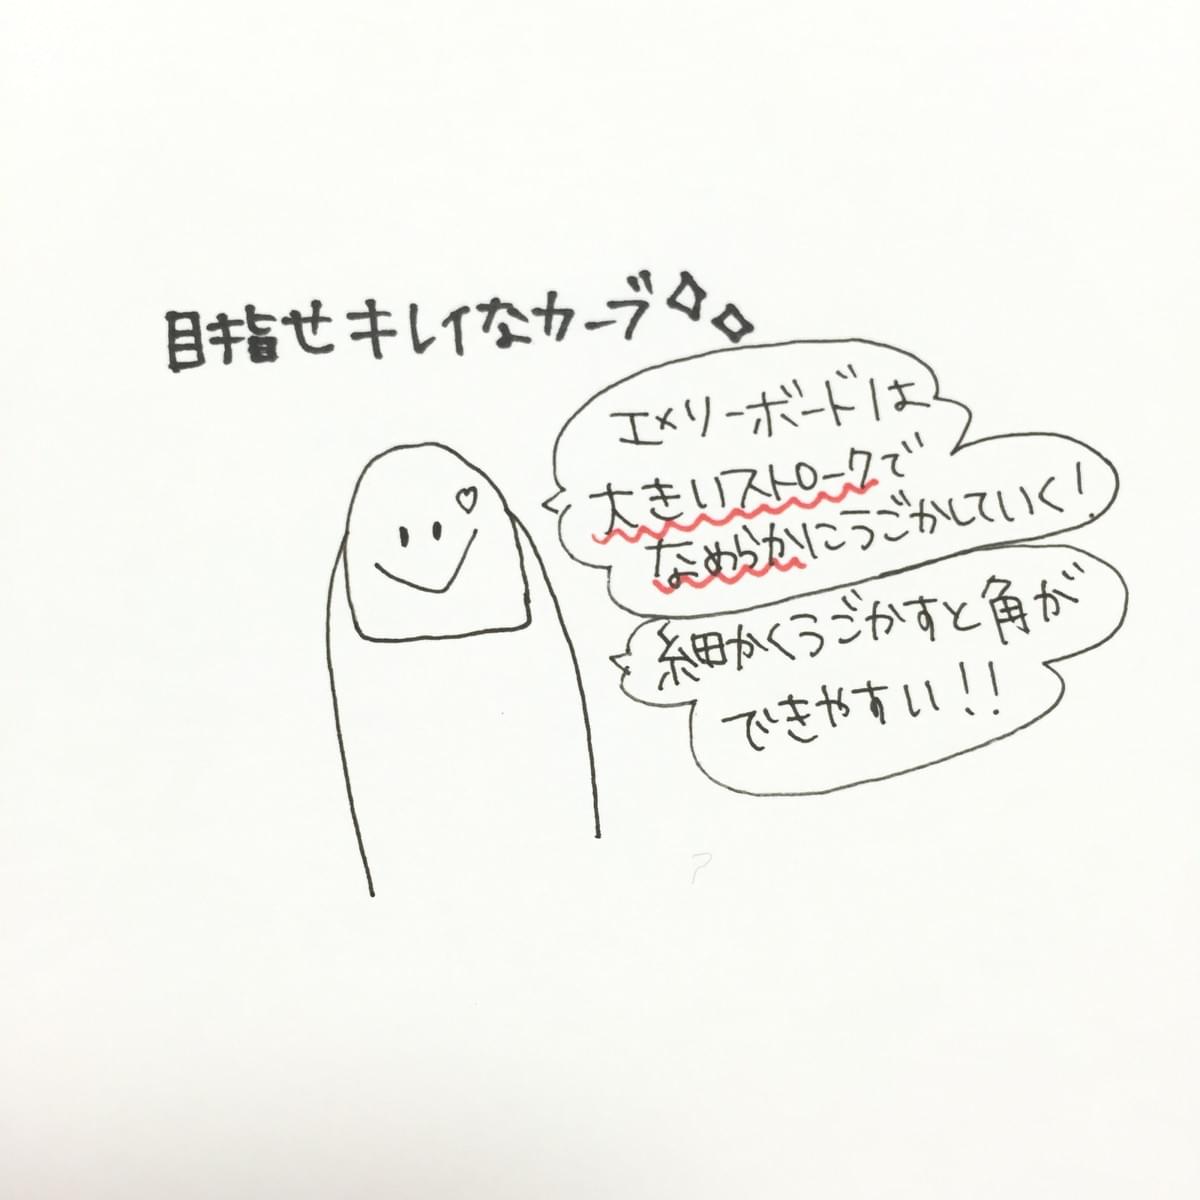 目指せキレイなカーブ
エメリーボードは
大きいストロークで
なめらかにうごかしていく!
細かくうごかすと角が
できやすい!!